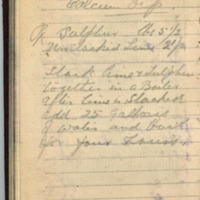 Dip
Rx Sulphur lbs 5 1/2
Unslacked Lime 2 1/2
Slack lime & Sulphur
together in a Boiler
after lime is Slacked
add 25 Gallons
of water and
for four hours